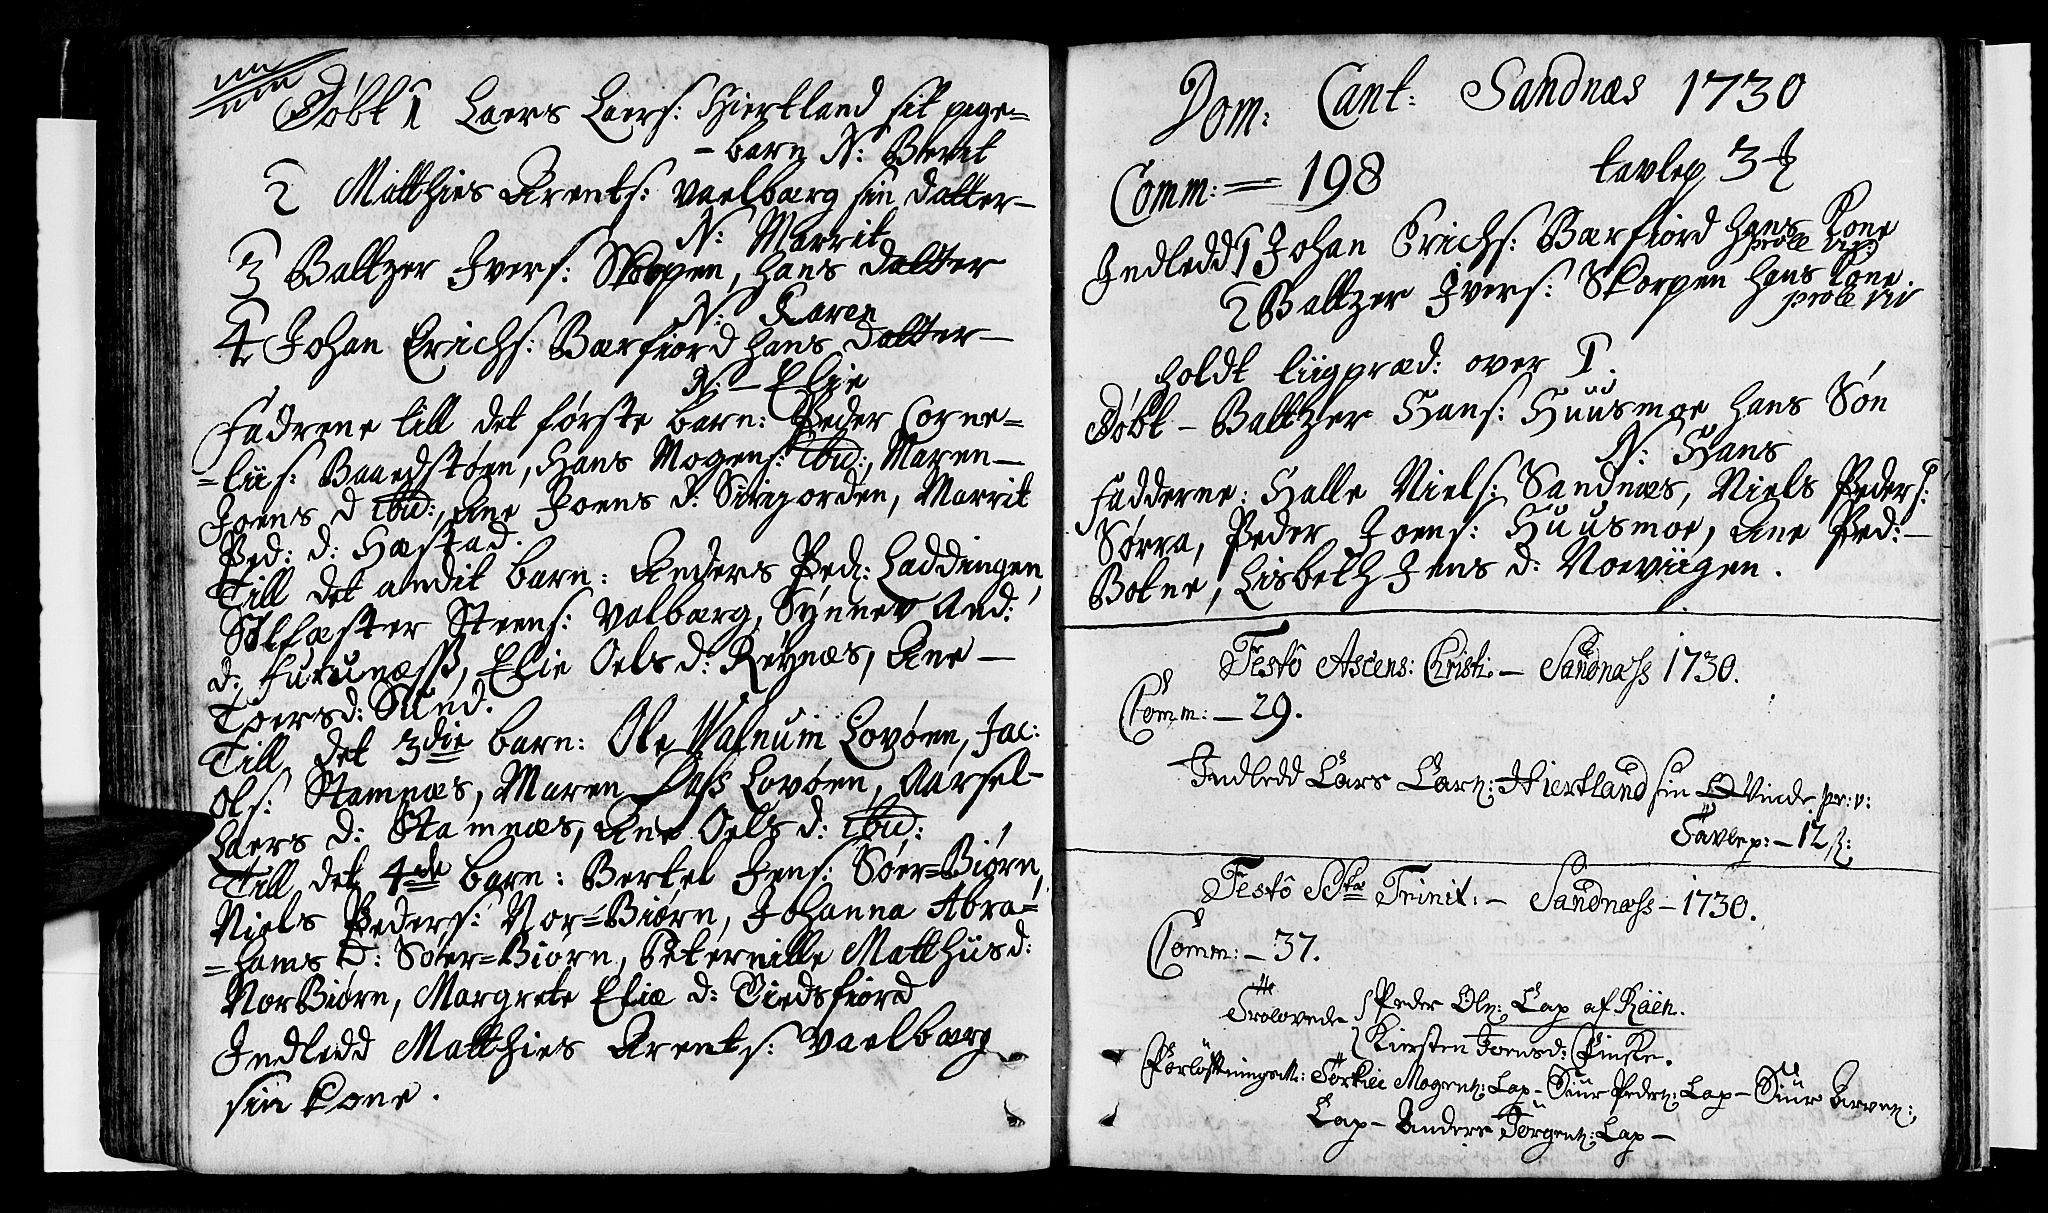 Døbt 1 Laers Laers: Hiertland sit pige=
-barn N: Berit
2 Matthies Arents: Vaelbærg sin datter-
N: Marrit
3 Baltzer Ivers: Skorpen, hans datter
N: Karen
4 Johan Erichs: Bærfiord hans datter-
N:- Elie
Fadrene till det første barn: Peder Corne=
=liis: Baaedstøen, Hans Mogens: ibid:, Maren-
Joens d ibid:, Ane Joens d: Siri, Marrit
Ped: d: Hæstad.
Till det andit barn: Anders Peds: Laddingen,
Sølfæster Steens: Valbærg, Synnev And:
d: Furunæss, Elie Oels d: Røynæs, Ane-
Toersd: Sund.
Till det 3die barn: Ole Walnum Lovøen, Jac:
Ols: Stamnæs, Maren Dass Lovøen, Aarsel-
Laers d: Stamnæs, Ane Oels d: ibid:
Till det 4de barn: Bertel Jens: Søer=Biørn,
Niels Peders: Nor=Biørn, Johanna Abra=
=hams D: Søer=Biørn, Peternille Matthiisd:
NorBiørn, Margrete Eliæ d: Tiedsfiord
Indledd Matthies Arents: Vaelbærg
sin kone.
Dom: Cant: Sandnæs 1730
Comm: = 198 tavlep 3
Indledd 1 Johan Erichs: Bærfiord hans kone
prole viv
2 Baltzer Ivers: Skorpen hans kone.
prole viv
holdt liigpræd: over 1.
Døbt - Baltzer Hans: Huusmoe hans Søn
N: Hans
Fadderne: Halle Niels: Sandnæs, Niels Peders:
Sørra, Peder Joens: Huusmoe, Ane Ped:-
Botne, Lisbeth Jens d: Norviigen.
Festô Ascens: Christi:- Sandnæss 1730.
Comm:- 29.
Indledd Lars Lars: Hiertland sin Qvinde pr: v:
Tavlep:- 12 s:
Festô SStæ Trinit:- Sandnæss- 1730.
Comm:- 37.
Trolovede Peder Ols: Lap af Raën.
Kiersten Joensd: Finske.
Forløftningsm: Torkiel Mogens: Lap- Siur Peders: Lap- Siur Arves:
Lap- Anders Jørgens: Lap-